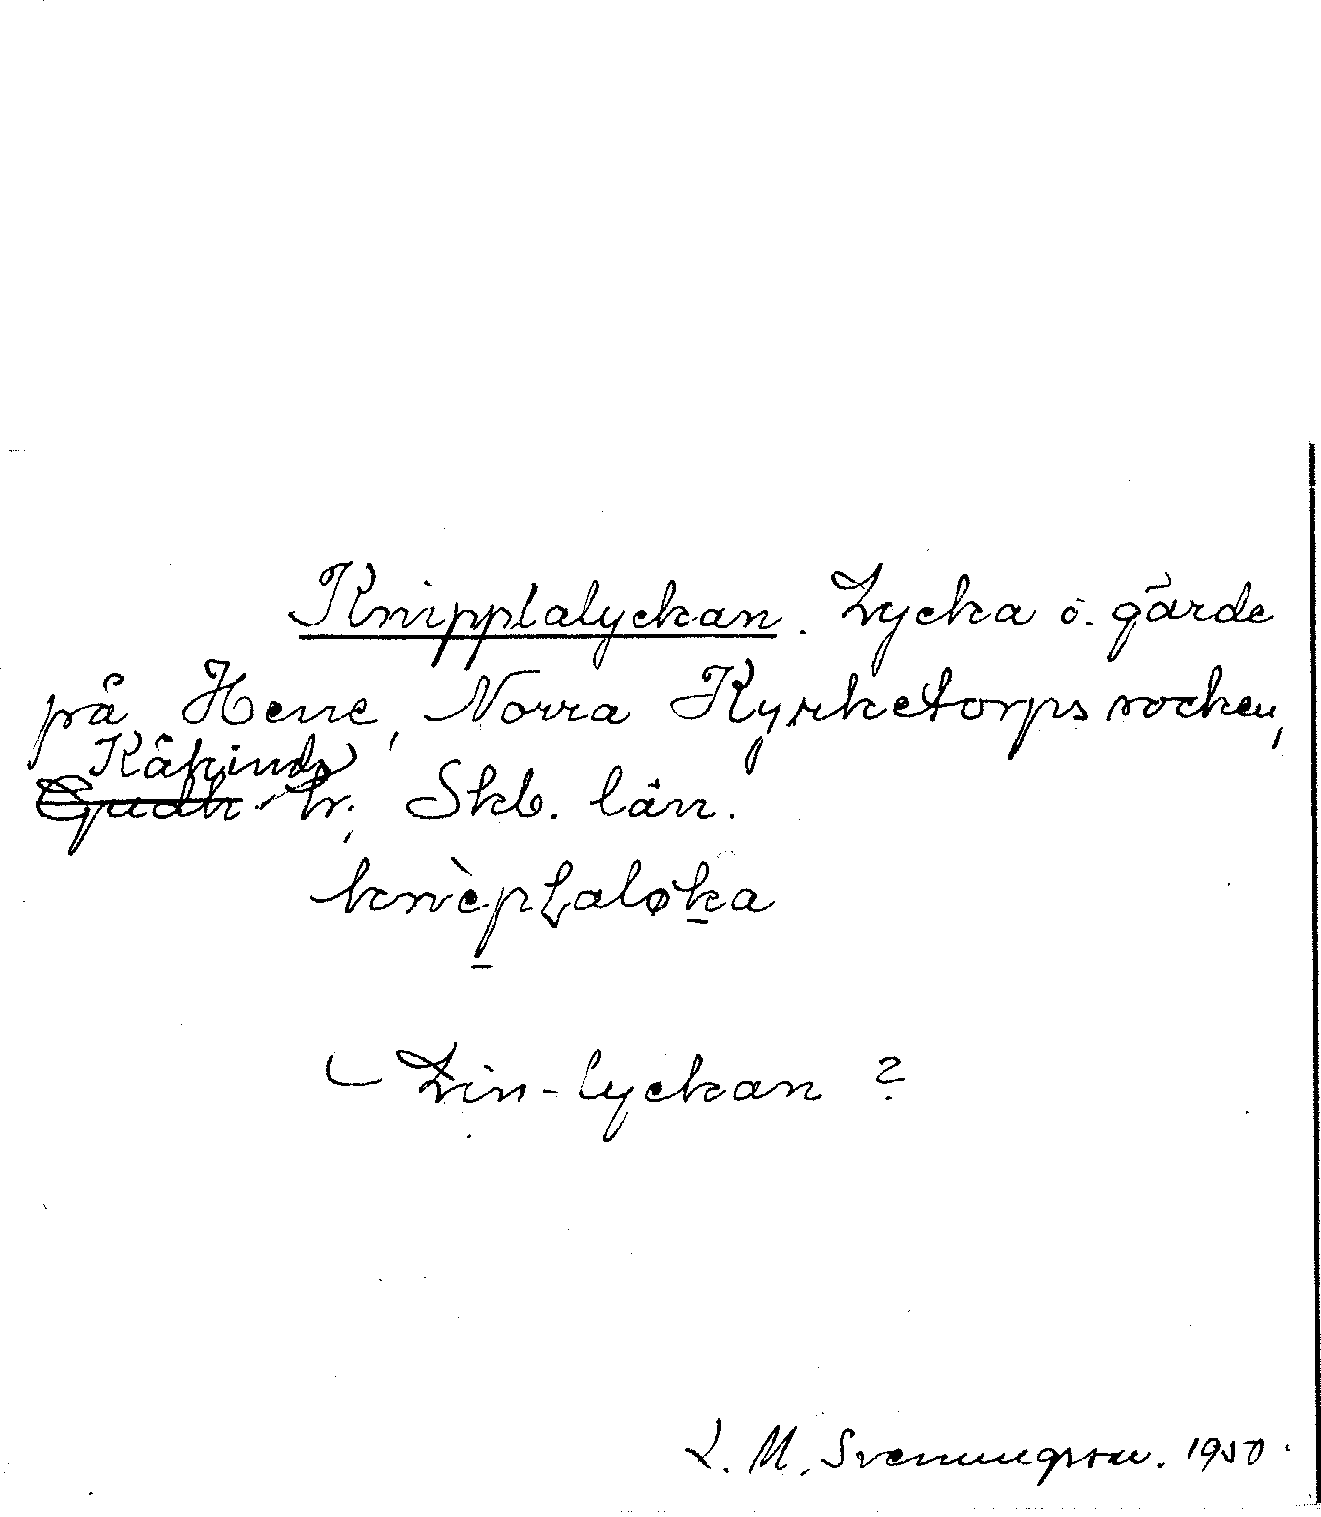 Knipplalyckan. Lycka o. gärde
på Hene, Norra Kyrketorps socken,
Kåkinds
Gudh. hr, Skb. län.
knèpLaløka
Lin-lyckan ?
L. M. Svenungsson. 1950.